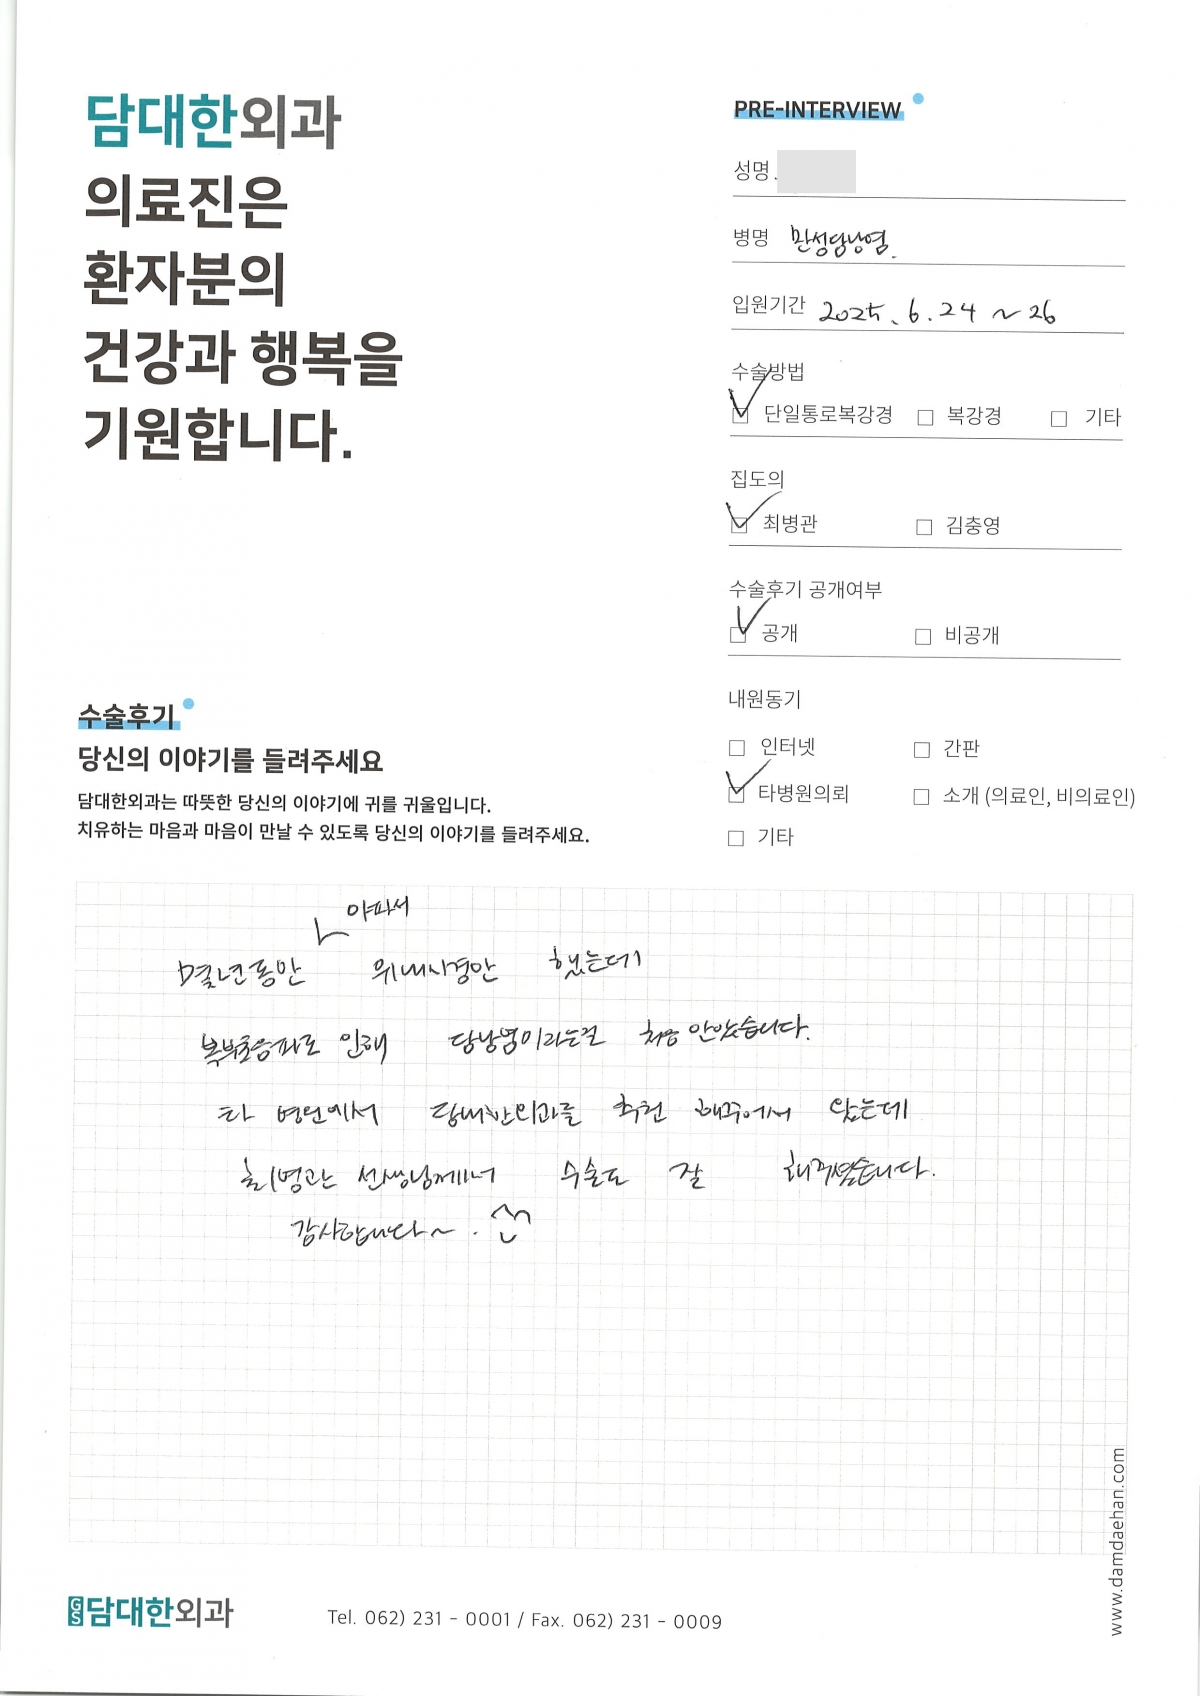 담대한외과
의료진은
환자분의
건강과 행복을
기원합니다.
PRE-INTERVIEW
성명
병명 만성담낭염.
입원기간 2025. 6. 24 ~ 26
수술방법
단일통로복강경 복강경 기타
집도의
최병관 김충영
수술후기 공개여부
공개 비공개
내원동기
인터넷 간판
타병원의뢰 소개 (의료인, 비의료인)
기타
수술후기
당신의 이야기를 들려주세요
담대한외과는 따뜻한 당신의 이야기에 귀를 귀울입니다.
치유하는 마음과 마음이 만날 수 있도록 당신의 이야기를 들려주세요.
아파서
몇년동안 위내시경만 했는데
복부초음파로 인해 담낭염이라는걸 처음 알았습니다.
타 병원에서 담대한외과를 추천 해주어서 왔는데
최병관 선생님께서 수술도 잘 해주셨습니다.
감사합니다~.
www.damdaehan.com
GS 담대한외과
Tel. 062) 231 - 0001 / Fax. 062) 231 - 0009